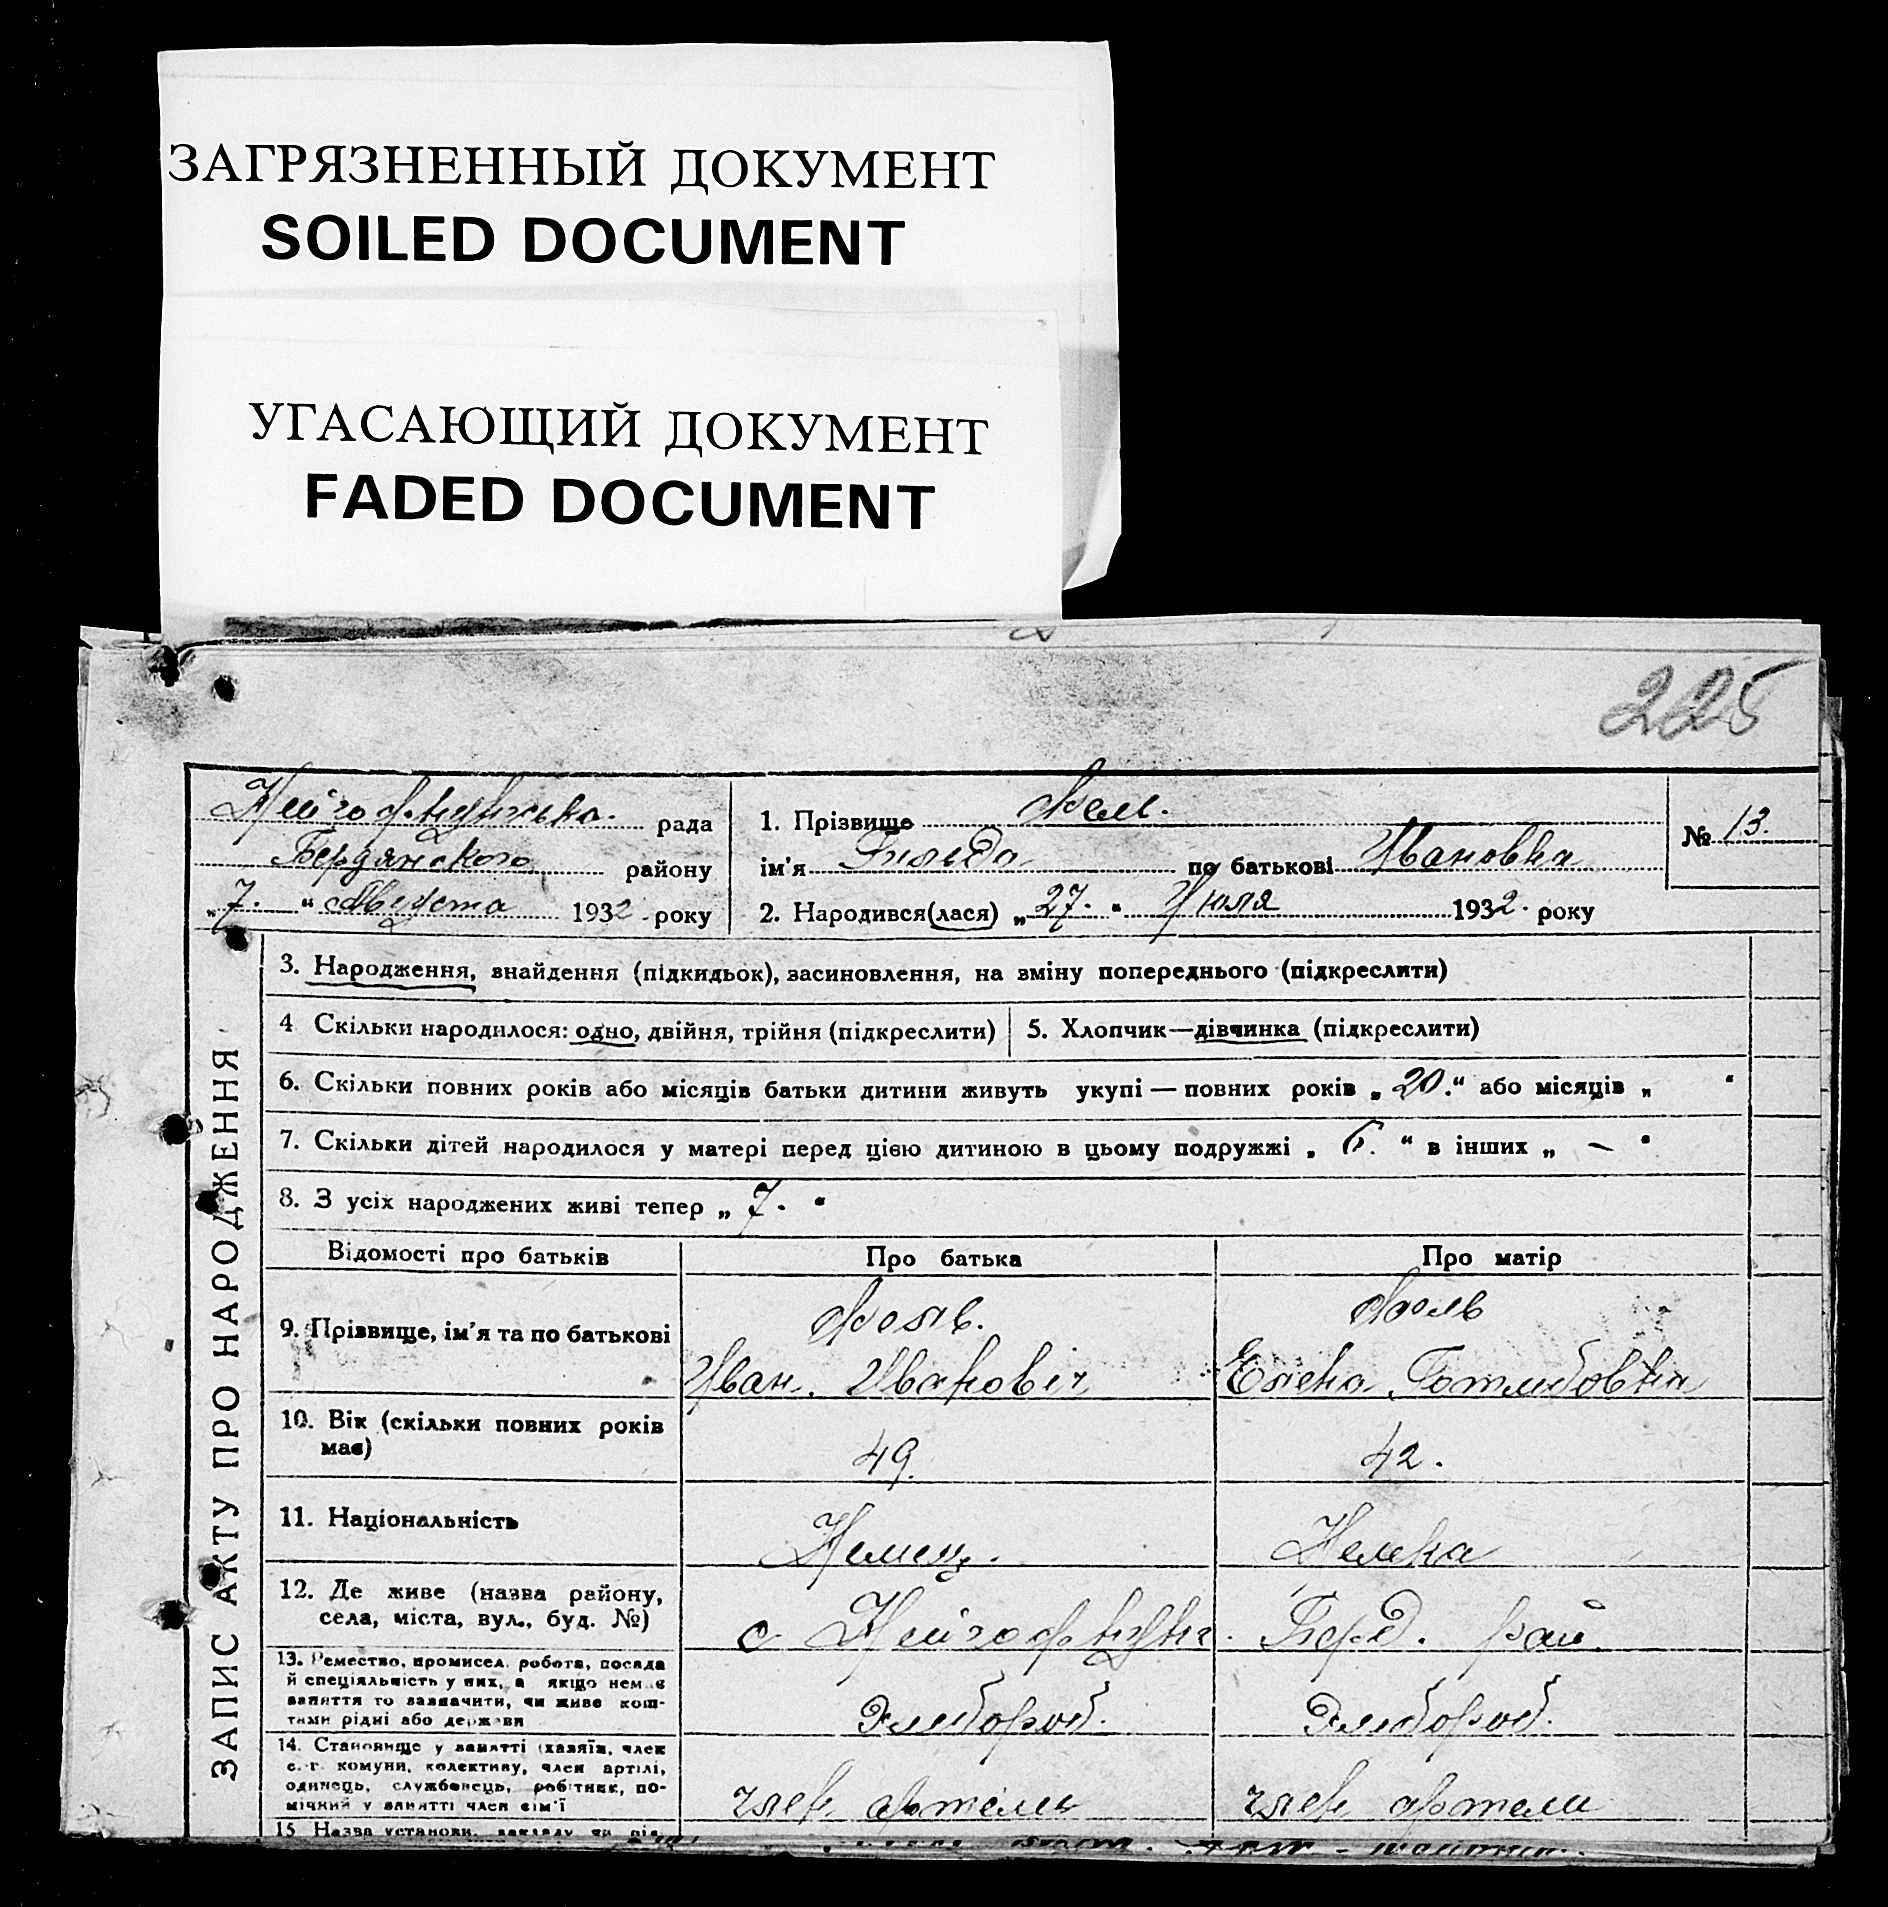 ЗАГРЯЗНЕННЫЙ ДОКУМЕНТ
SOILED DOCUMENT
УГАСАЮЩИЙ ДОКУМЕНТ
FADED DOCUMENT
225
ЗАПИС АКТУ ПРО НАРОДЖЕННЯ
рада
Бердянского району
„7.“ Августа 1932 року
1. Прізвище
ім'я Гильда по батькові Ивановна
2. Народився(лася) „27.“ Июля 1932. року
№ 13.
3. Народження, внайдення (підкидьок), засиновлення, на зміну попереднього (підкреслити)
4 Скільки народилося: одно, двійня, трійня (підкреслити)
5. Хлопчик—дівчинка (підкреслити)
6. Скільки повних років або місяців батьки дитини живуть укупі — повних років „20.“ або місяців „ “
7. Скільки дітей народилося у матері перед цією дитиною в цьому подружжі „6.“ в інших „ — “
8. З усіх народжених живі тепер „7.“
Відомості про батьків Про батька Про матір
9. Прізвище, ім'я та по батькові
Иван Иванович Елена Готлибовна
10. Вік (скільки повних років
має) 49. 42.
11. Національність Немец. Немка
12. Де живе (назва району,
села, міста, вул., буд. №) с Берд. рай.
13. Ремество, промисел, робота, посада
й спеціяльність у них, а якщо немає
заняття то зазначити, чи живе кош-
тами рідні або держави Хлибороб. Хлибороб.
14. Становище у занятті (хазяїн, член
с.-г. комуни, колективу, член артілі,
одинець, службовець, робітник, по-
мічний у занятті член сім'ї член артели член артели
15 Назва установи, закладу чи